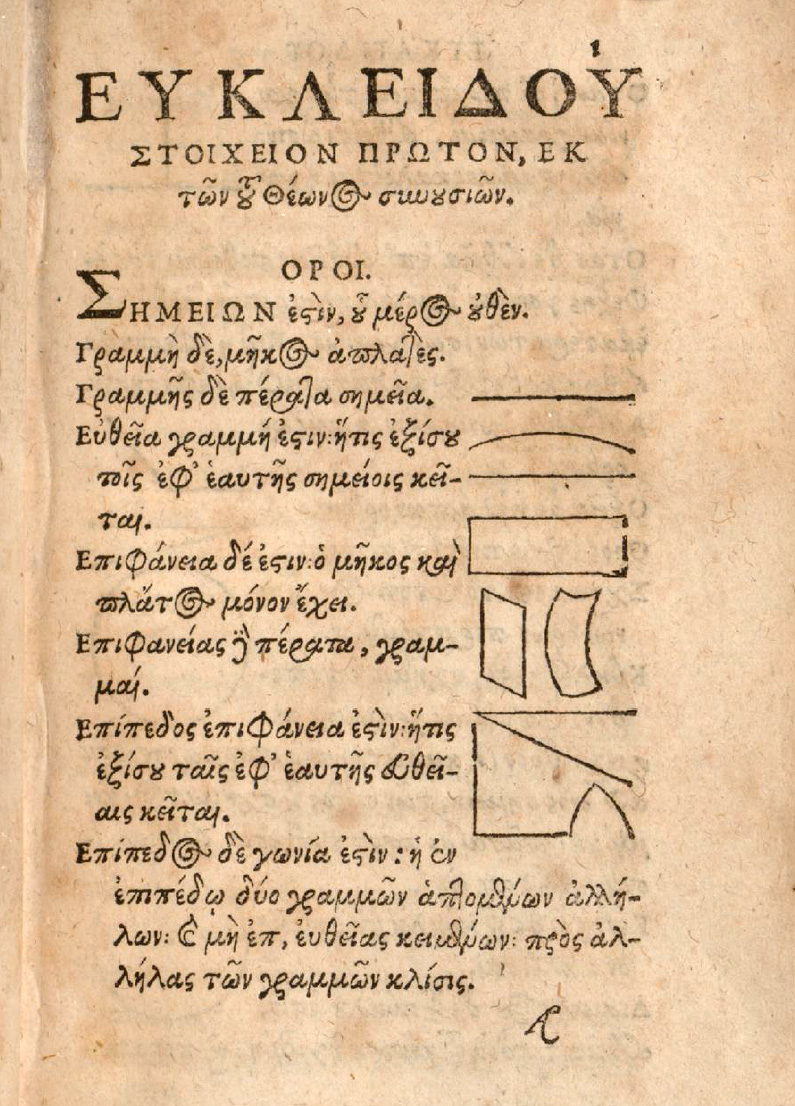 ΕΥΚΛΕΙΔΟΥ
ΣΤΟΙΧΕΙΟΝ ΠΡΩΤΟΝ, ΕΚ
τῶν τοῦ Θέωνος συνουσιῶν.
ΟΡΟΙ.
ΣΗΜΕΙΩΝ ἐςὶν, οὗ μέρος οὐθὲν.
Γραμμὴ δὲ, μῆκος ἀπλατὲς.
Γραμμῆς δὲ πέρατα σημεῖα.
Εὐθεῖα γραμμή ἐςιν: ἥτις ἐξίσου
τοῖς ἐφ' ἑαυτῆς σημείοις κεῖ-
ται.
Επιφάνεια δέ ἐςιν: ὁ μῆκος καὶ
πλάτος μόνον ἔχει.
Επιφανείας δὲ πέρατα, γραμ-
μαί.
Επίπεδος ἐπιφάνεια ἐςὶν: ἥτις
ἐξίσου ταῖς ἐφ' ἑαυτῆς εὐθεῖ-
αις κεῖται.
Επίπεδος δὲ γωνία ἐςὶν: ἡ ἐν
ἐπιπέδῳ δύο γραμμῶν ἁπτομένων ἀλλή-
λων: καὶ μὴ ἐπ, ἐυθείας κειμένων: πρὸς ἀλ-
λήλας τῶν γραμμῶν κλίσις.